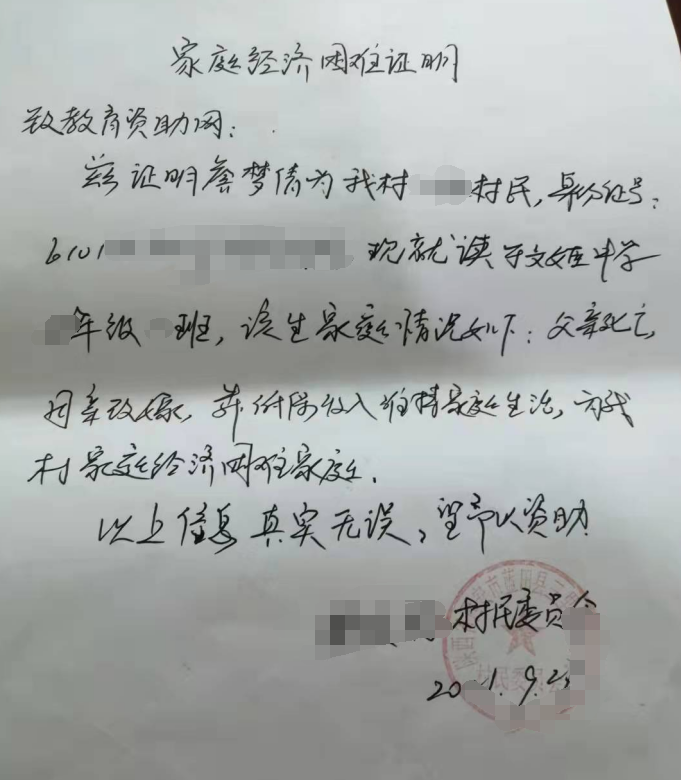 家庭经济困难证明
致教育资助网：
兹证明詹梦倩为我村 村民，身份证号：
6101 现就读于文姬中学
年级 班，该生家庭情况如下：父亲死亡，
母亲改嫁，靠低保收入维持家庭生活，为我
村家庭经济困难家庭。
以上信息真实无误，望予以资助
村民委员会
20 1.9.2